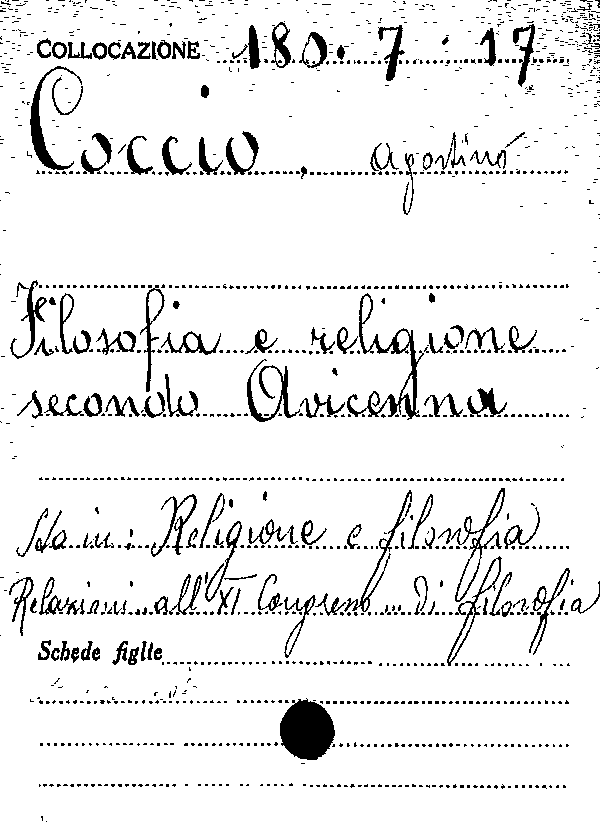 COLLOCAZIONE 180. 7. 17
Coccio, Agostino
Filosofia e religione
secondo Avicenna
Sta in: Religione e filosofia
Relazioni all'XI Congresso... di filosofia
Schede figlie